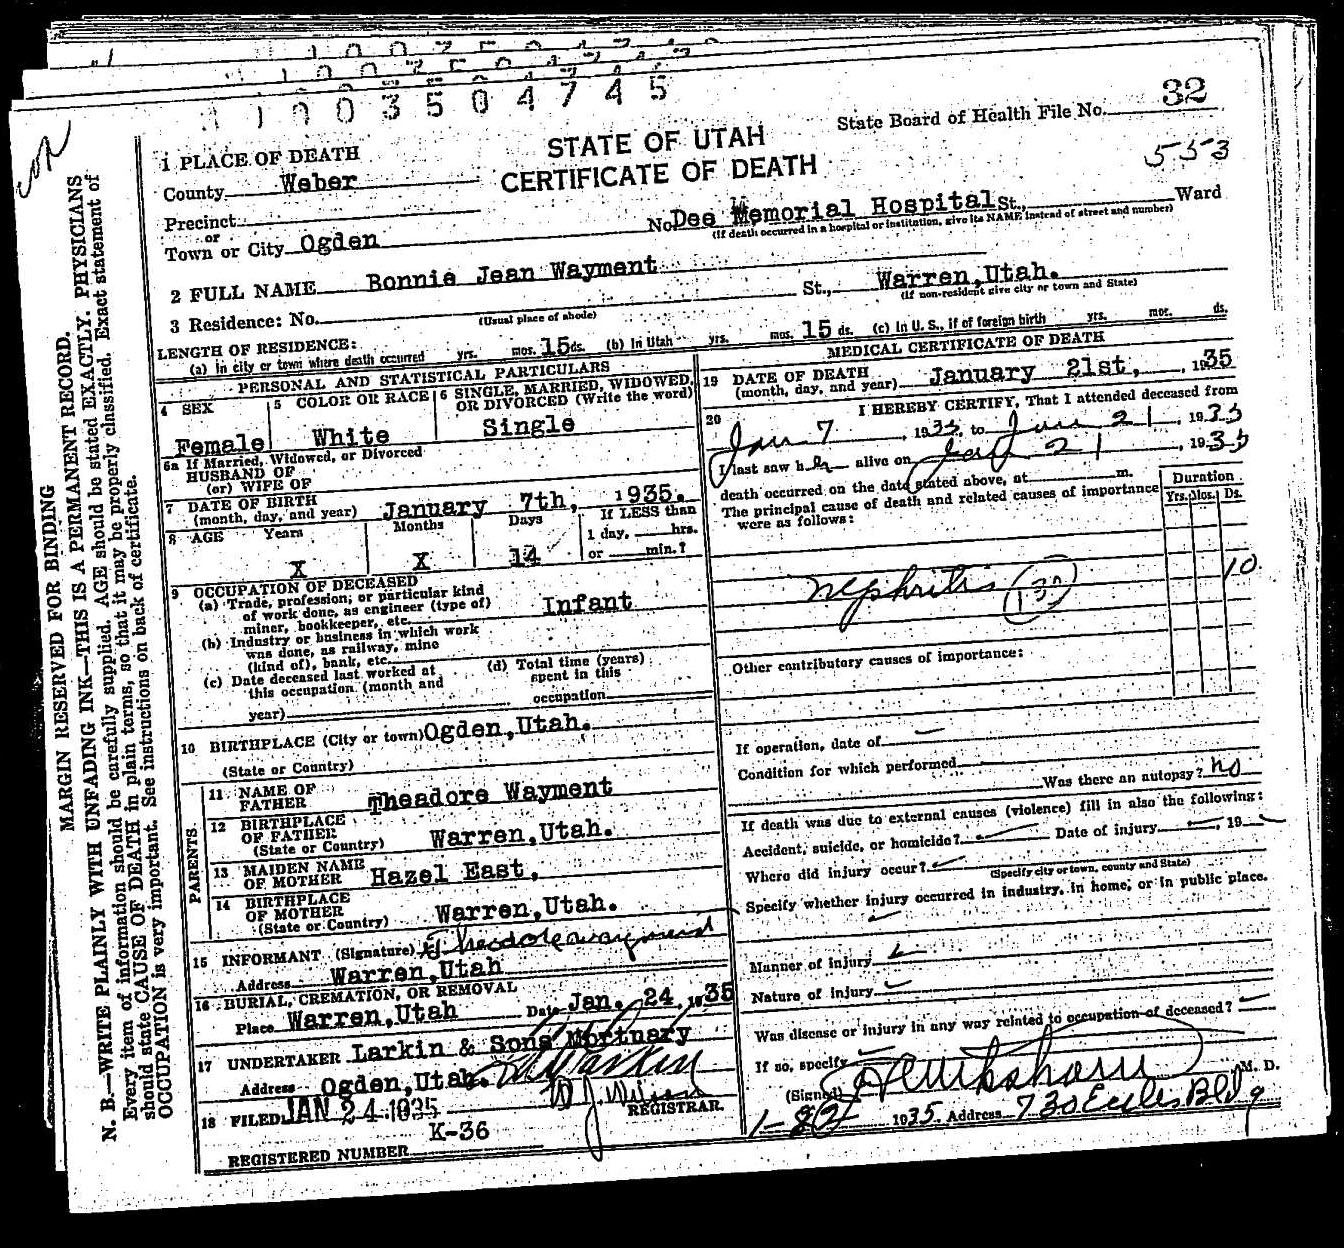 1 1 0 0 3 5 0 4 7 4 5
State Board of Health File No. 32
553
STATE OF UTAH
CERTIFICATE OF DEATH
1 PLACE OF DEATH
County Weber
Precinct
or
Town or City Ogden
No. Dee Memorial Hospital St., Ward
(If death occurred in a hospital or institution, give its NAME instead of street and number)
2 FULL NAME Bonnie Jean Wayment
3 Residence: No. St., Warren, Utah.
(Usual place of abode) (If non-resident give city or town and State)
LENGTH OF RESIDENCE:
(a) In city or town where death occurred yrs. mos. 15 ds. (b) In Utah yrs. mos. 15 ds. (c) In U. S., if of foreign birth yrs. mos. ds.
PERSONAL AND STATISTICAL PARTICULARS
4 SEX
Female
5 COLOR OR RACE
White
6 SINGLE, MARRIED, WIDOWED,
OR DIVORCED (Write the word)
Single
6a If Married, Widowed, or Divorced
HUSBAND OF
(or) WIFE OF
7 DATE OF BIRTH
(month, day, and year) January 7th, 1935.
8 AGE Years Months Days If LESS than
1 day, hrs.
X X 14 or min.?
9 OCCUPATION OF DECEASED
(a) Trade, profession, or particular kind
of work done, as engineer (type of)
miner, bookkeeper, etc. Infant
(b) Industry or business in which work
was done, as railway, mine
(kind of), bank, etc.
(c) Date deceased last worked at
this occupation (month and
year)
(d) Total time (years)
spent in this
occupation
10 BIRTHPLACE (City or town) Ogden, Utah.
(State or Country)
PARENTS.
11 NAME OF
FATHER Theadore Wayment
12 BIRTHPLACE
OF FATHER
(State or Country) Warren, Utah.
13 MAIDEN NAME
OF MOTHER Hazel East,
14 BIRTHPLACE
OF MOTHER
(State or Country) Warren, Utah.
15 INFORMANT (Signature) Theodore Wayment
Address Warren, Utah
16 BURIAL, CREMATION, OR REMOVAL
Place Warren, Utah Date Jan. 24 1935
17 UNDERTAKER Larkin & Sons Mortuary
Address Ogden, Utah.
18 FILED JAN 24 1935
REGISTRAR.
K-36
REGISTERED NUMBER
MEDICAL CERTIFICATE OF DEATH
19 DATE OF DEATH
(month, day, and year) January 21st, 1935
20 I HEREBY CERTIFY, That I attended deceased from
Jan 7, 1935, to Jan 21, 1935
I last saw her alive on Jan 21, 1935
death occurred on the date stated above, at m.
The principal cause of death and related causes of importance
were as follows:
Duration
Yrs. Mos. Ds.
nephritis (130) 10
Other contributory causes of importance:
If operation, date of
Condition for which performed
Was there an autopsy? no
If death was due to external causes (violence) fill in also the following:
Accident, suicide, or homicide? Date of injury , 19
Where did injury occur?
(Specify city or town, county and State)
Specify whether injury occurred in industry, in home, or in public place.
Manner of injury
Nature of injury
Was disease or injury in any way related to occupation of deceased?
If so, specify
(Signed) M. D.
1935. Address 730 Eccles Bldg
MARGIN RESERVED FOR BINDING
N. B.—WRITE PLAINLY WITH UNFADING INK—THIS IS A PERMANENT RECORD.
Every item of information should be carefully supplied. AGE should be stated EXACTLY. PHYSICIANS
should state CAUSE OF DEATH in plain terms, so that it may be properly classified. Exact statement of
OCCUPATION is very important. See instructions on back of certificate.